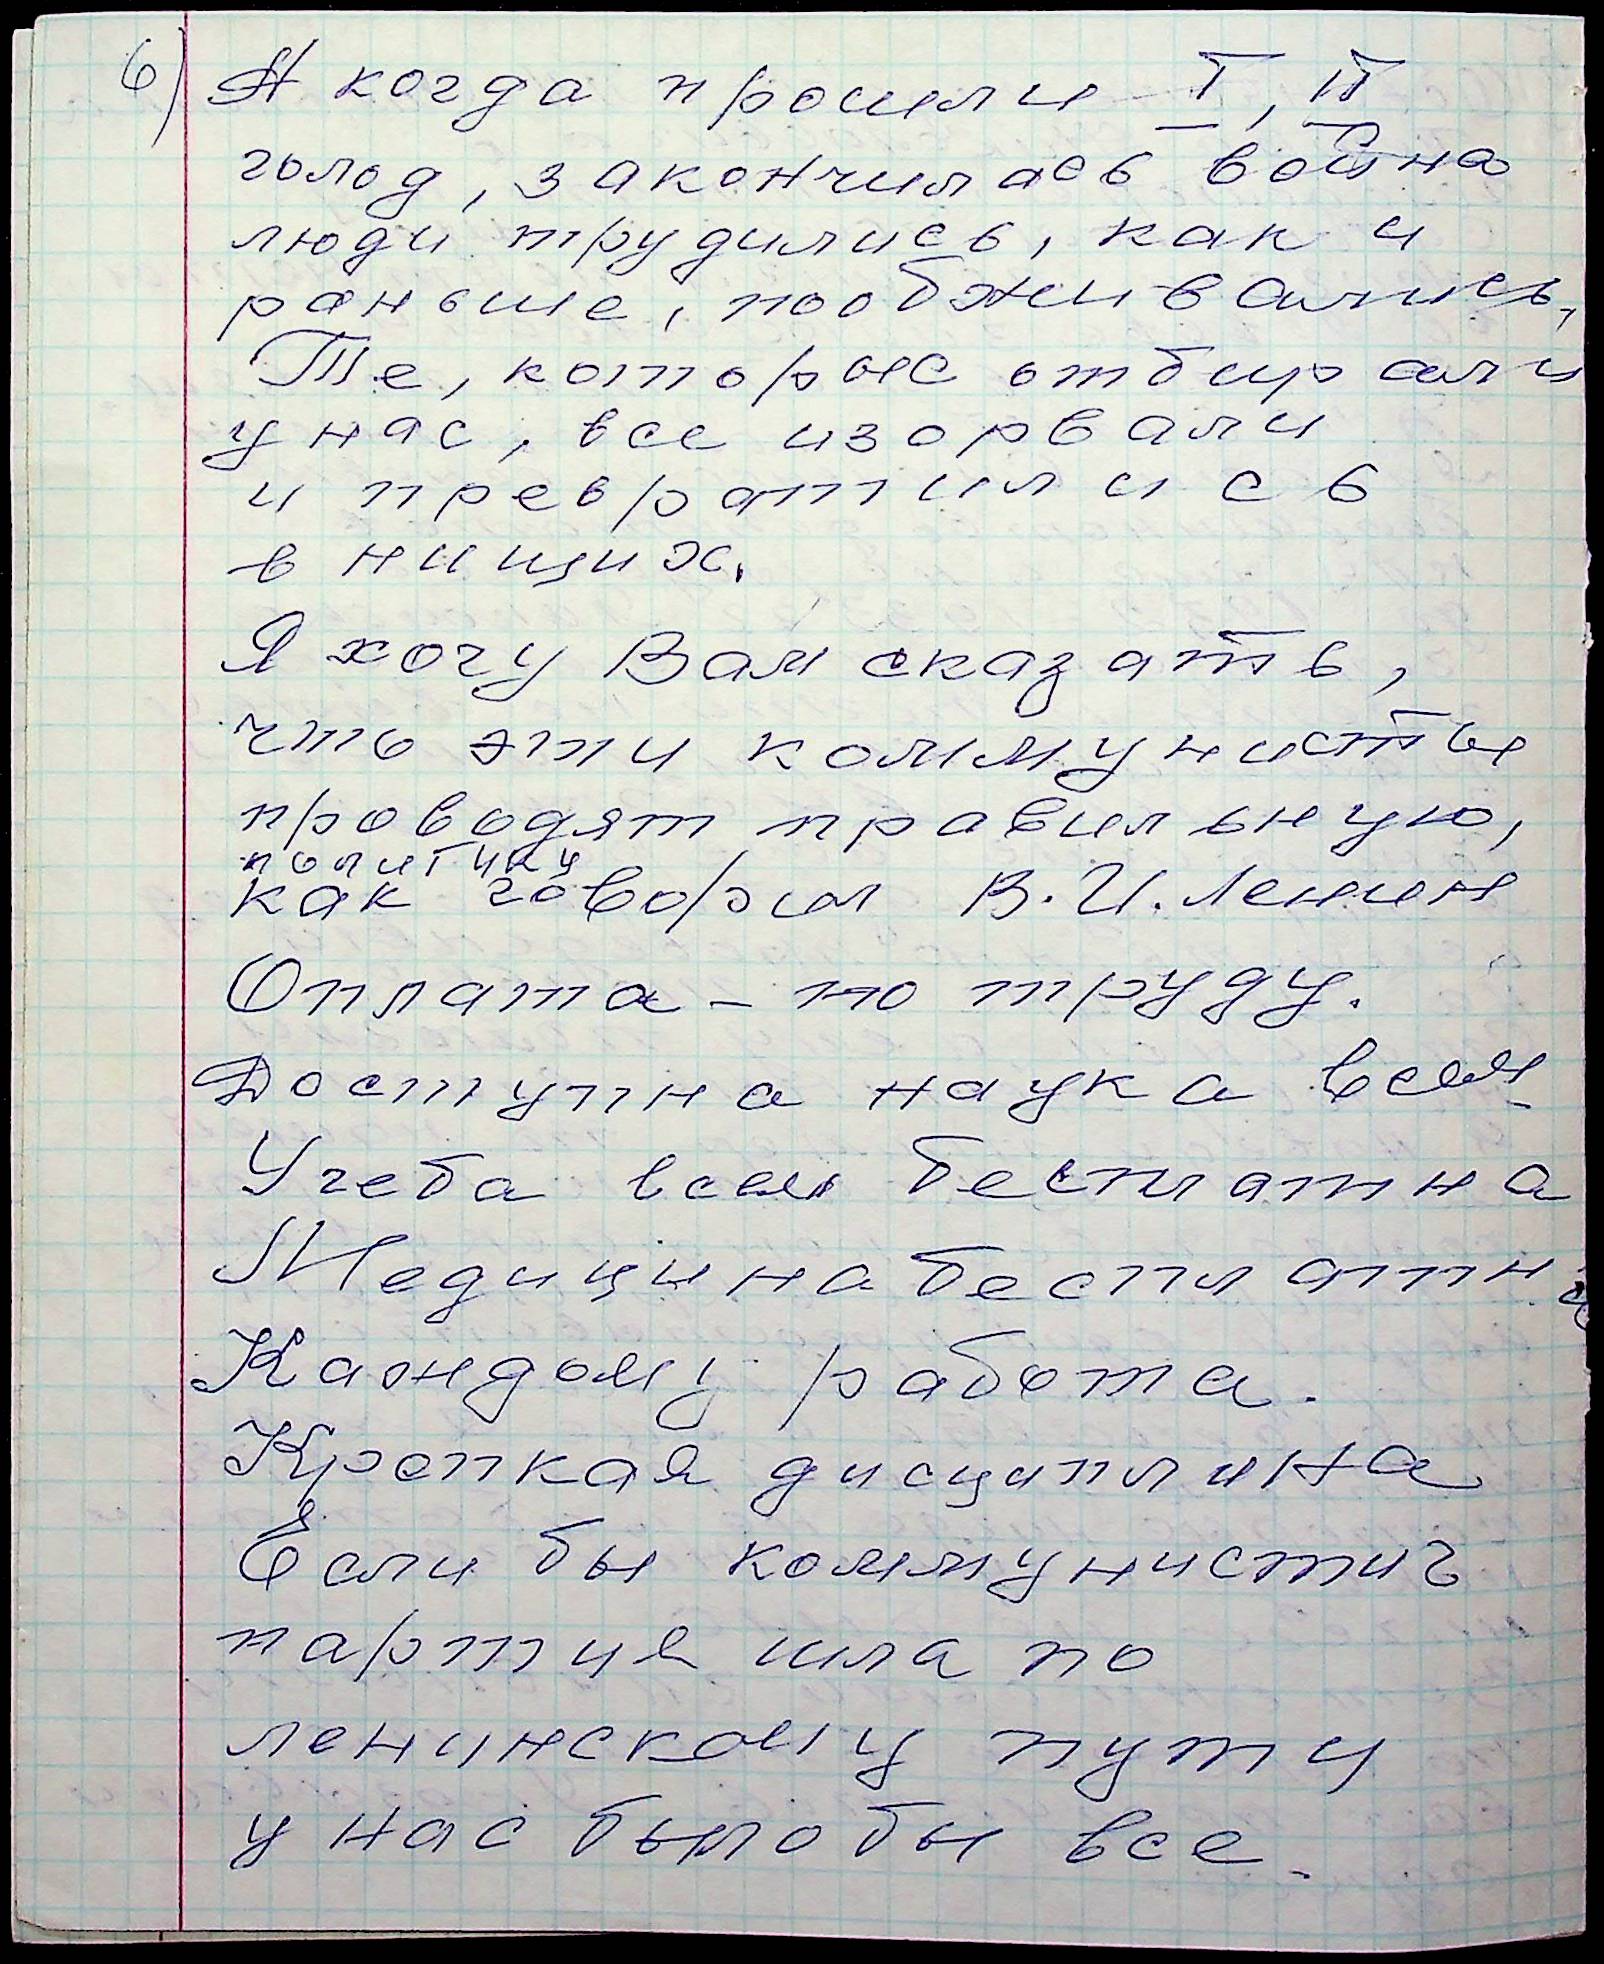 6) А когда прошли I, II
голод, закончилась война
люди трудились, как и
раньше, пообживались,
Те, которые отбирали
у нас, все изорвали
и превратились
в нищих.
Я хочу Вам сказать,
что эти коммунисты
проводят правильную,
политику
как говорил В.И. Ленин
Оплата - по труду.
Доступна наука всем.
Учеба всем бесплатна
Медицина бесплатна
Каждому работа.
Крепкая дисциплина
Если бы коммунистич
партия шла по
ленинскому пути
у нас было бы все.